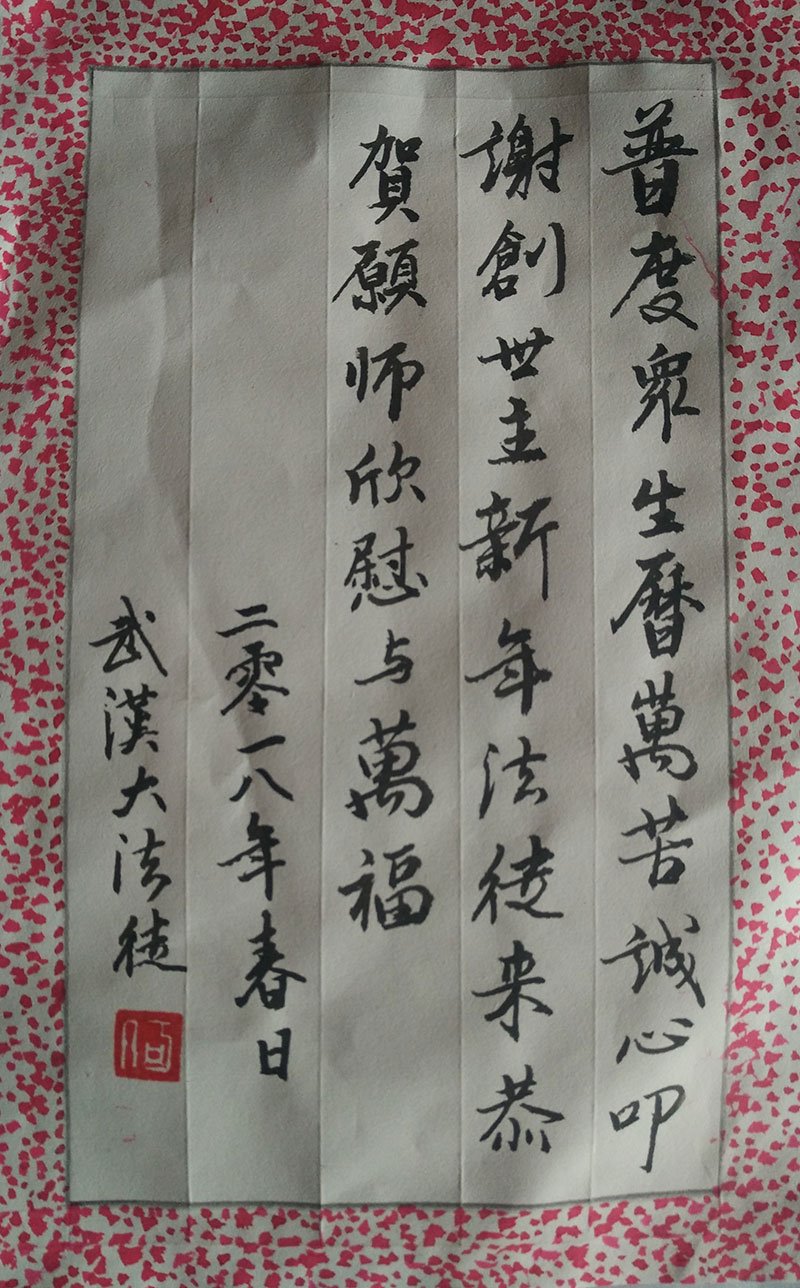 普度衆生曆萬苦誠心叩
謝創世主新年法徒来恭
賀願师欣慰与萬福
二零一八年春日
武漢大法徒